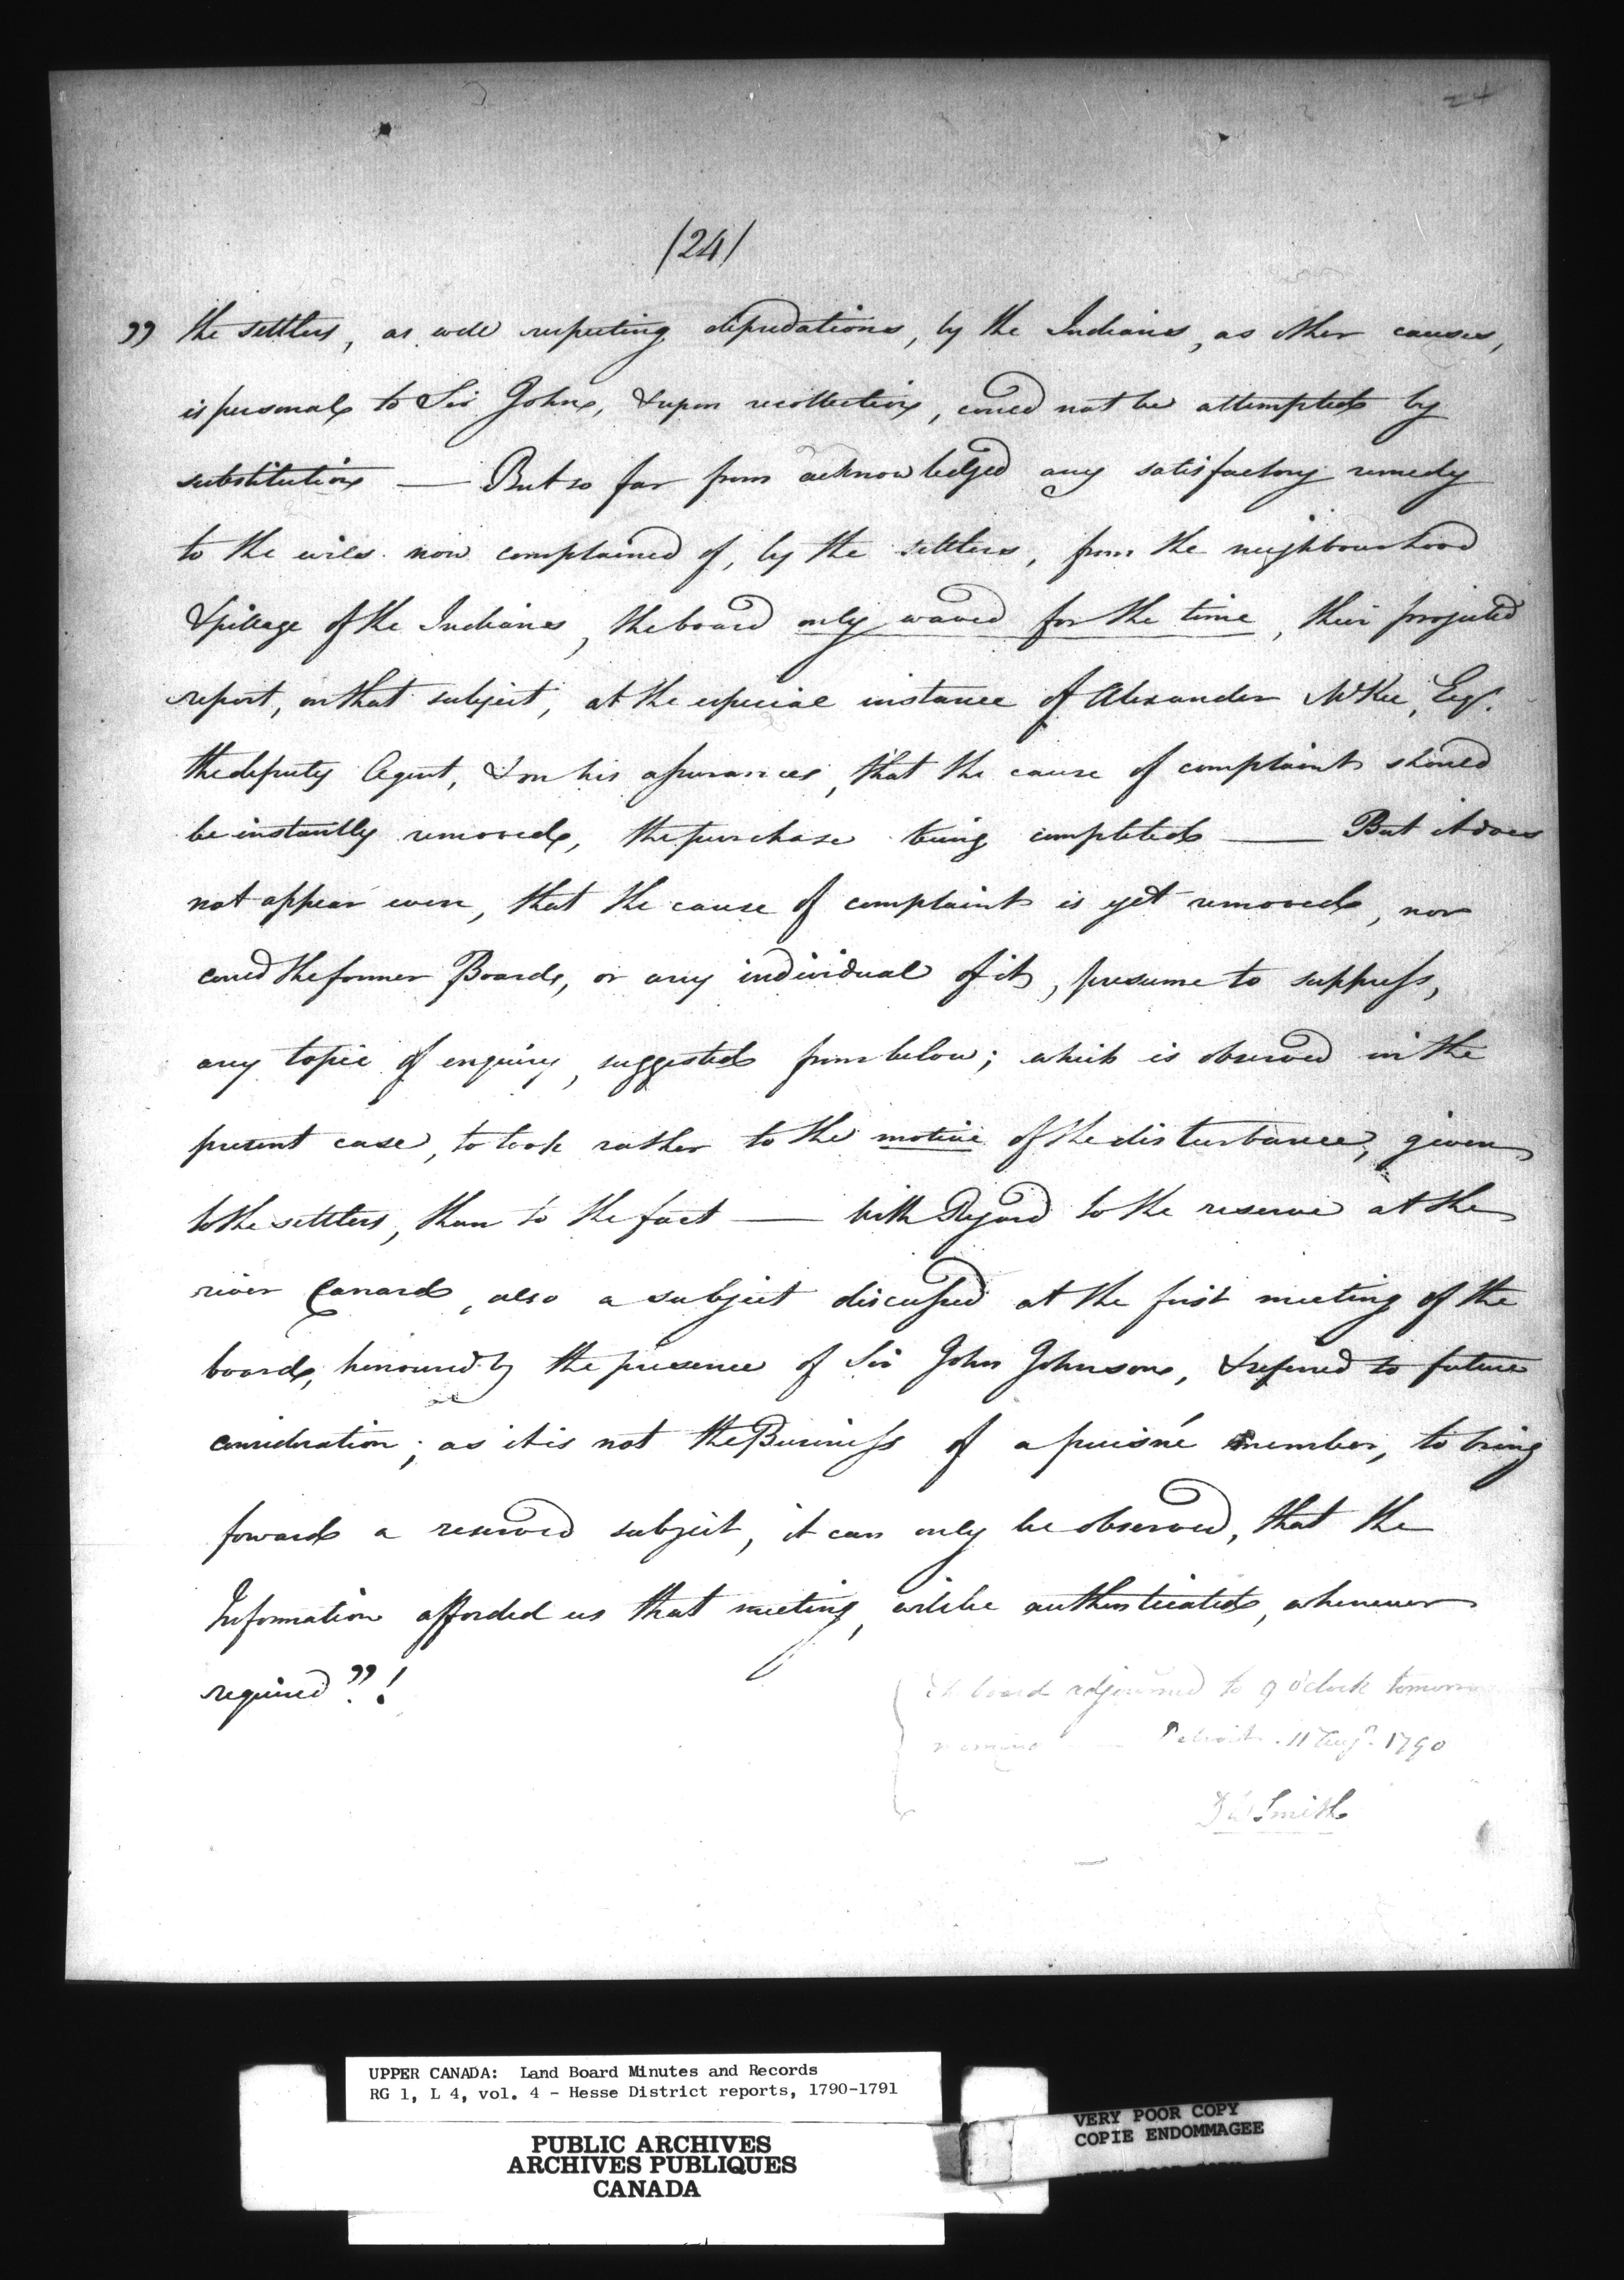 24
/24/
” the settlers, as well respecting depredations, by the Indians, as other causes,
is personal to Sir John, & upon recollection, could not be attempted by
substitution — But so far from acknowledged any satisfactory remedy
to the evils now complained of, by the settlers, from the neighbourhood
& pillage of the Indians, the board only waved for the time, their projected
report, on that subject, at the especial instance of Alexander McKee, Esqr.
the deputy Agent, & on his assurances, that the cause of complaint should
be instantly removed, the purchase being completed — But it does
not appear even, that the cause of complaint is yet removed, nor
could the former Board, or any individual of it, presume to suppress,
any topic of enquiry, suggested from below; which is observed in the
present case, to look rather to the motive of the disturbance, given
to the settlers, than to the fact — With Regard to the reserve at the
river Canard, also a subject discussed at the first meeting of the
board, honoured by the presence of Sir John Johnson, & referred to future
consideration; as it is not the Business of a puisné member, to bring
foward a reserved subject, it can only be observed, that the
Information afforded us that meeting, will be authenticated, whenever
required ”!
board adjourned to 9 o'clock tomorrow
Detroit 11 Augt. 1790
D W Smith
UPPER CANADA: Land Board Minutes and Records
RG 1, L 4, vol. 4 - Hesse District reports, 1790-1791
PUBLIC ARCHIVES
ARCHIVES PUBLIQUES
CANADA
VERY POOR COPY
COPIE ENDOMMAGEE